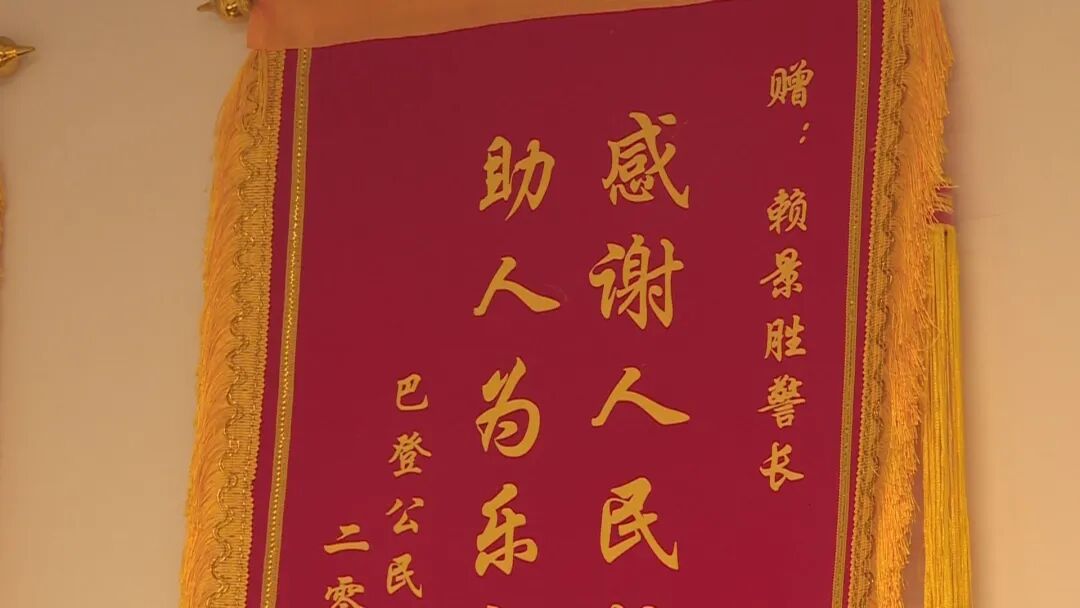 赠：赖景胜警长
感谢人民
助人为乐
巴登公民
二零